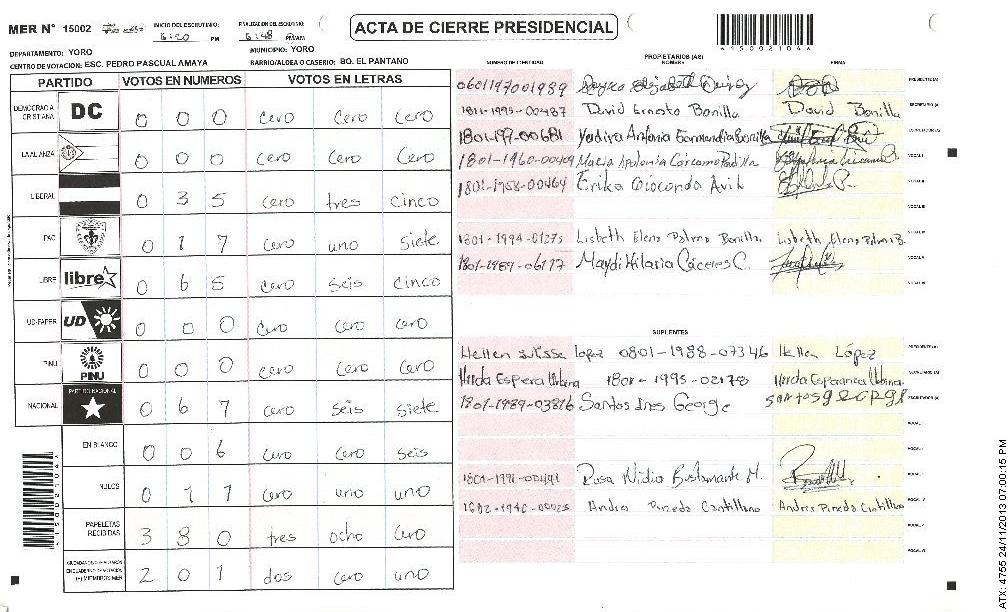 MER N° 15002
INICIO DEL ESCRUTINIO:
6:20 PM
FINALIZACION DEL ESCRUTINIO:
6:48 PM/AM
ACTA DE CIERRE PRESIDENCIAL
DEPARTAMENTO: YORO
MUNICIPIO: YORO
CENTRO DE VOTACION: ESC. PEDRO PASCUAL AMAYA
BARRIO/ALDEA O CASERIO: BO. EL PANTANO
PARTIDO VOTOS EN NUMEROS VOTOS EN LETRAS
DEMOCRACIA CRISTIANA DC 0 0 0 Cero Cero Cero
LA ALIANZA 0 0 0 Cero Cero Cero
LIBERAL 0 3 5 cero tres cinco
PAC 0 1 7 cero uno siete
LIBRE libre 0 6 5 cero seis cinco
UD-FAPER UD 0 0 0 Cero Cero Cero
PINU PINU 0 0 0 cero Cero Cero
NACIONAL PARTIDO NACIONAL 0 6 7 cero seis siete
EN BLANCO 0 0 6 cero cero seis
NULOS 0 1 1 cero uno uno
PAPELETAS RECIBIDAS 3 8 0 tres ocho cero
(+) MIEMBROS MER 2 0 1 dos cero uno
NUMERO DE IDENTIDAD
PROPIETARIOS (AS)
NOMBRE
FIRMA
0601197001989 PRESIDENTE (A)
1811-1995-00487 David Ernesto Bonilla David Bonilla SECRETARIO (A)
Yadira Antonia
1801-1960-00404 Maria Apolonia Cárcamo Padilla VOCAL I
1801-1958-00464 Erika Gioconda VOCAL II
VOCAL III
1801-1994-01275 Lisbeth Elena Palma Bonilla. Lisbeth Elena Palma B. VOCAL IV
1801-1989-06117 Maydi Hilaria Cáceres C. VOCAL V
VOCAL VI
SUPLENTES
Hellen López 0801-1988-07346 Hellen López PRESIDENTE (A)
Urbina 1801-1995-02178 SECRETARIO (A)
1801-1989-03816 Santos Ines George Santos George
VOCAL I
VOCAL II
1801-1991-00491 Rosa Nidia Bustamante M. VOCAL III
Andres Pineda Cantillano Andres Pineda Cantillano VOCAL IV
VOCAL V
VOCAL VI
4150020414
ATX: 4755 24/11/2013 07:00:15 PM